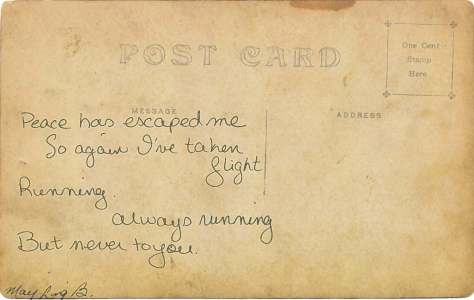 POST CARD
One Cent
Stamp
Here
MESSAGE
ADDRESS
Peace has escaped me
So again I've taken
flight
Running.
always running
But never to you.
May B.